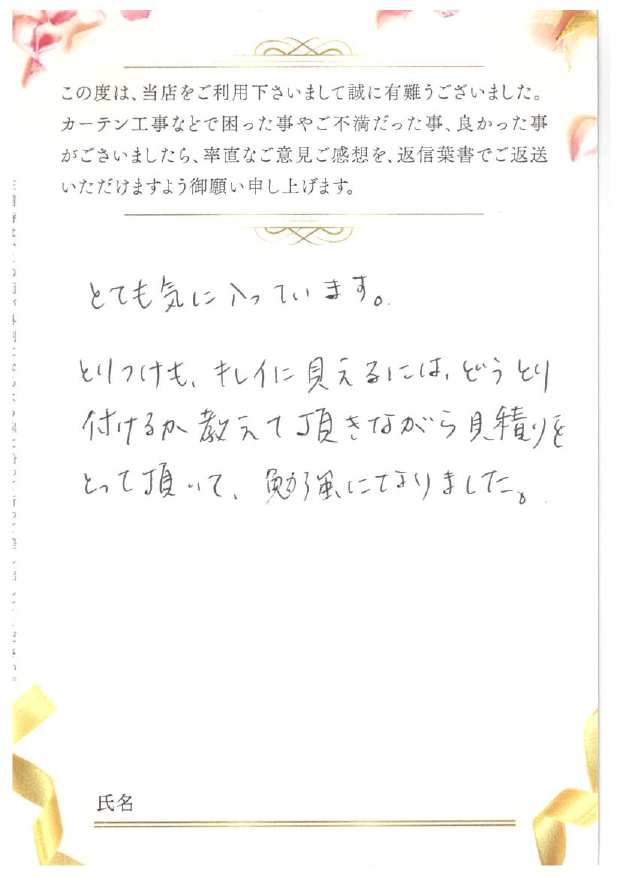 この度は、当店をご利用下さいまして誠に有難うございました。
カーテン工事などで困った事やご不満だった事、良かった事
がございましたら、率直なご意見ご感想を、返信葉書でご返送
いただけますよう御願い申し上げます。
とても気に入っています。
とりつけも、キレイに見えるには、どうとり
付けるか教えて頂きながら見積りを
とって頂いて、勉強になりました。
氏名